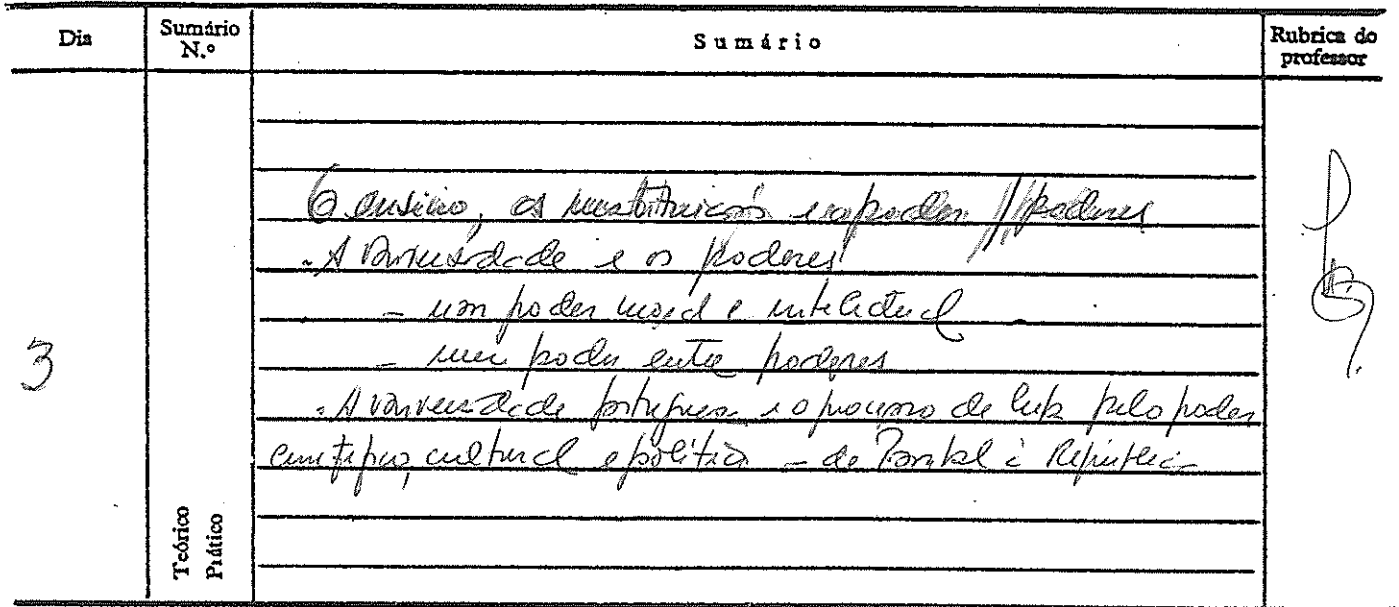 Dia
Sumário N.º
Sumário
Rubrica do professor
O ensino, as instituições e o poder // poderes
. A Universidade e os poderes
- um poder moral e intelectual
- um poder entre poderes
3
. A Universidade portuguesa e o processo de luta pelo poder
científico, cultural e político - de Pombal à República
Teórico
Prático